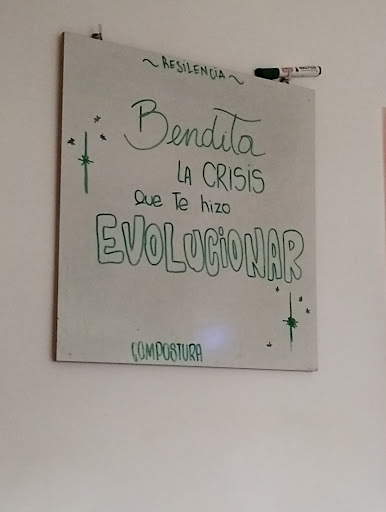 ~RESILENCIA~
Bendita
LA CRISIS
Que Te hizo
EVOLUCIONAR
COMPOSTURA